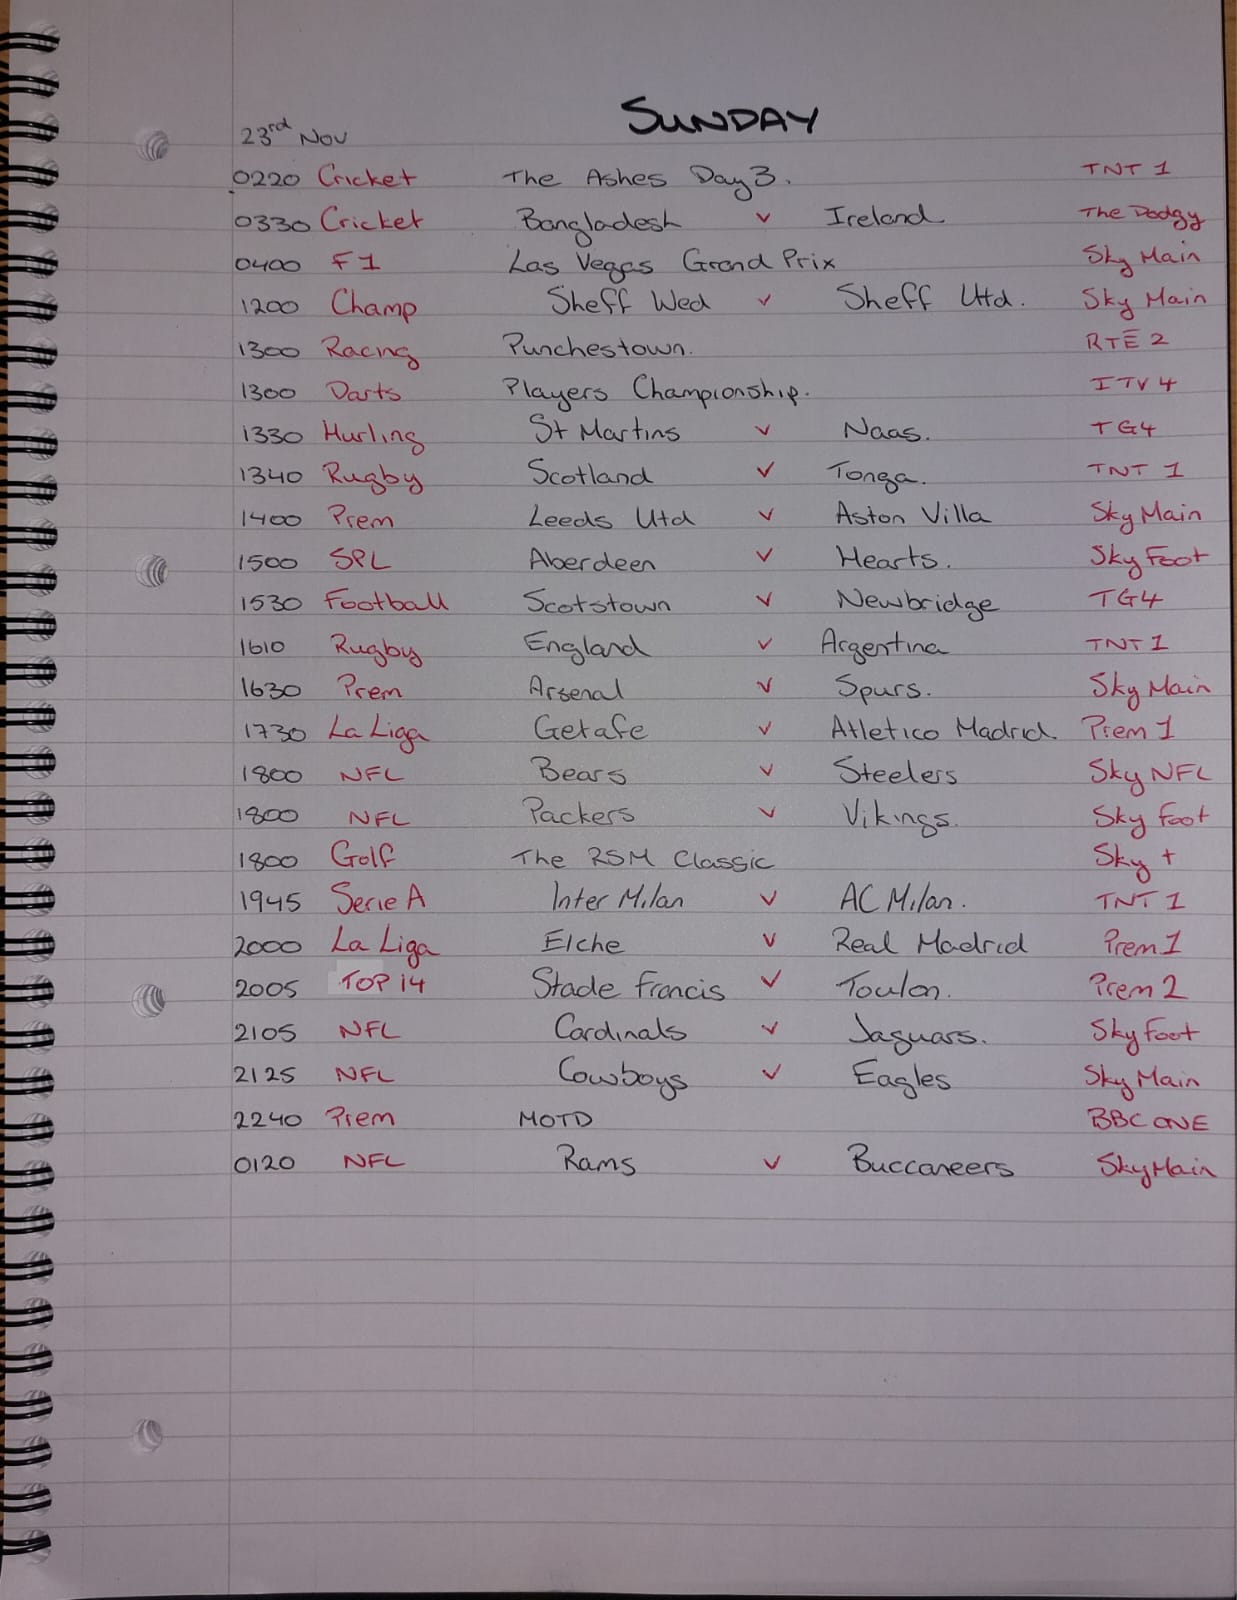 SUNDAY
23rd Nov
0220 Cricket The Ashes Day 3. TNT 1
0330 Cricket Bangladesh v Ireland The Dodgy
0400 F1 Las Vegas Grand Prix Sky Main
1200 Champ Sheff Wed v Sheff Utd. Sky Main
1300 Racing Punchestown. RTÉ 2
1300 Darts Players Championship. ITV 4
1330 Hurling St Martins v Naas. TG4
1340 Rugby Scotland v Tonga. TNT 1
1400 Prem Leeds Utd v Aston Villa Sky Main
1500 SPL Aberdeen v Hearts. Sky Foot
1530 Football Scotstown v Newbridge TG4
1610 Rugby England v Argentina TNT 1
1630 Prem Arsenal v Spurs. Sky Main
1730 La Liga Getafe v Atletico Madrid Prem 1
1800 NFL Bears v Steelers Sky NFL
1800 NFL Packers v Vikings. Sky Foot
1800 Golf The RSM Classic Sky +
1945 Serie A Inter Milan v AC Milan. TNT 1
2000 La Liga Elche v Real Madrid Prem 1
2005 TOP 14 Stade Francis v Toulon. Prem 2
2105 NFL Cardinals v Jaguars. Sky Foot
2125 NFL Cowboys v Eagles Sky Main
2240 Prem MOTD BBC ONE
0120 NFL Rams v Buccaneers Sky Main